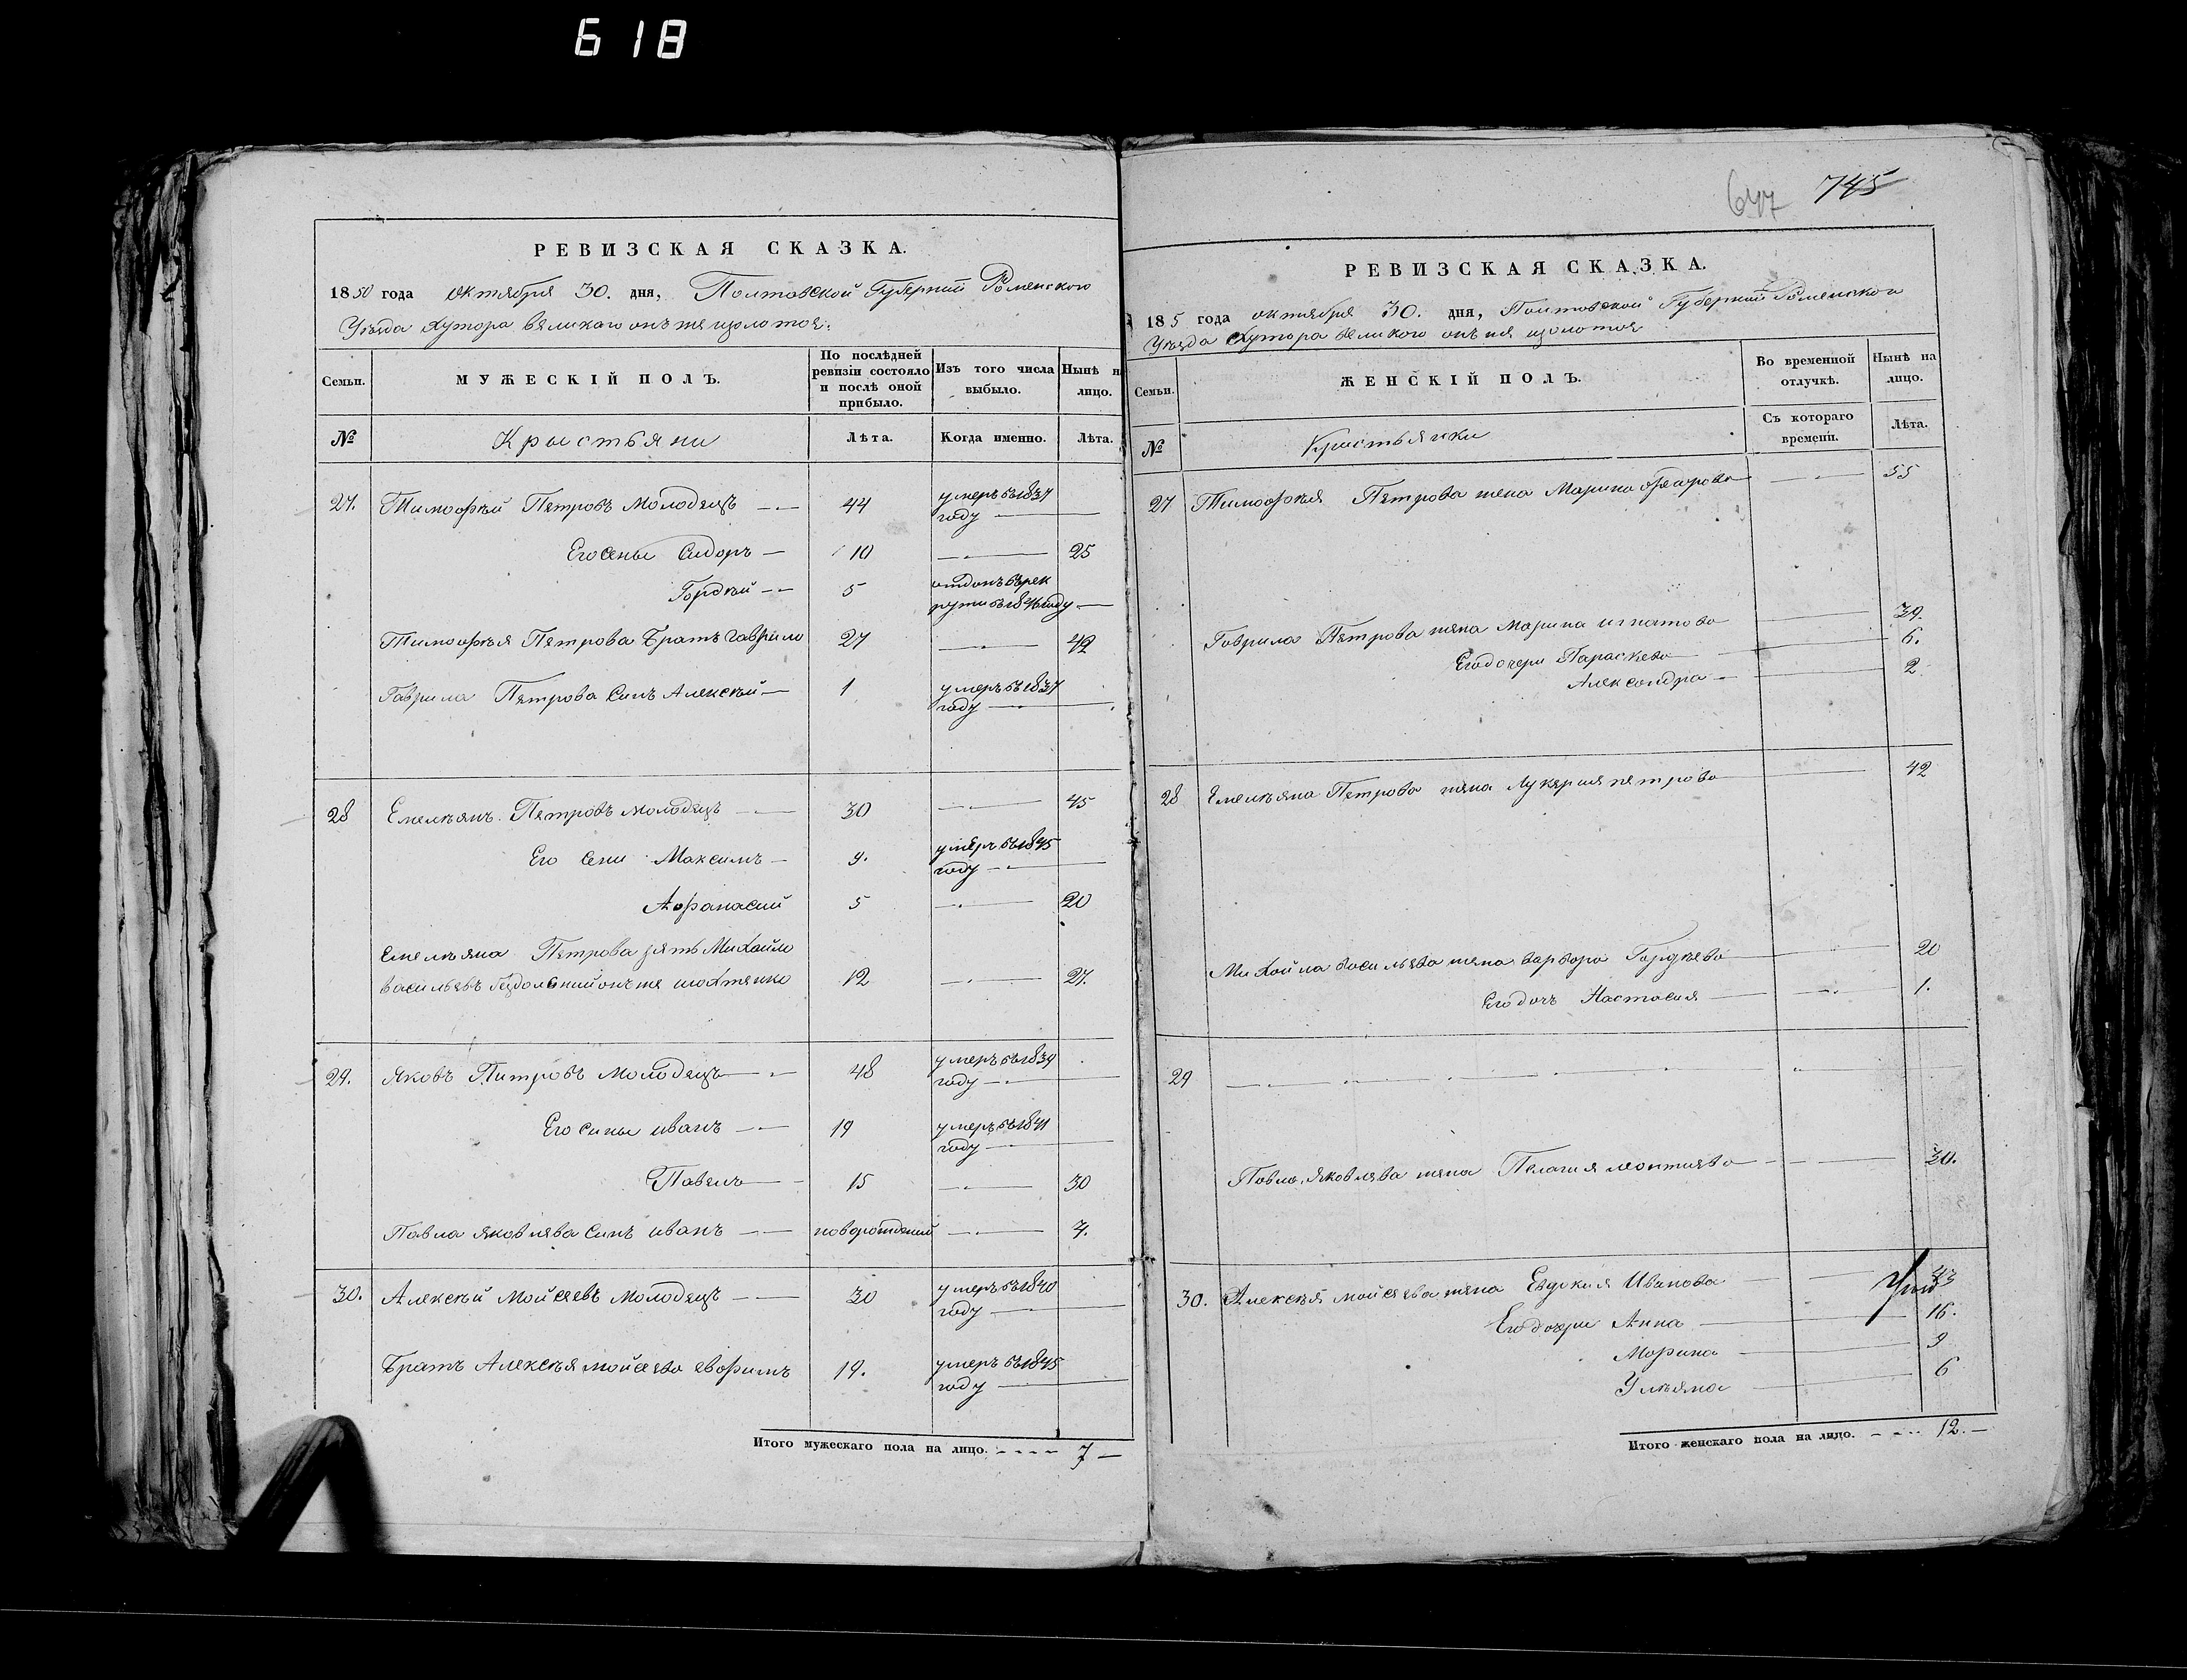 618
РЕВИЗСКАЯ СКАЗКА.
1850 года октября 30. дня, Полтовской Губерний Роменского
Уезда Хутора великаго
МУЖЕСКІЙ ПОЛЪ.
Семьи.
По послѣдней
ревизіи состояло
и послѣ оной
прибыло.
Изъ того числа
выбыло.
Нынѣ н
лицо.
№
Крыстьяни
Лѣта.
Когда именно.
Лѣта.
27. Тимофѣй Петровъ Молодецъ 44 умеръ въ 1837
году
Его сены Сидоръ 10 25
Гордѣй 5 отданъ въ рек
руты въ году
Тимофѣя Петрова братъ Гаврило 27 42
Гаврила Петрова синъ Алексѣй 1 умеръ въ 1837
году
28 Емельянъ Петровъ молодецъ 30 45
Его сени Максимъ 9. умеръ въ 1845
году
Афанасий 5 20
Емельяна Петрова зять Михайло
васильевъ 12 27.
29. Яковъ Питровъ молодецъ 48 умеръ въ 1839
году
Его сины иванъ 19 умеръ въ 1841
году
Павелъ 15 30
Павла яковлева синъ иванъ новорожденый 7.
30. Алексѣй мойсеевъ молодецъ 30 умеръ въ 1840
году
братъ Алексѣя мойсеева евфимъ 19. умеръ въ 1845
году
Итого мужескаго пола на лицо. 7
647 745
РЕВИЗСКАЯ СКАЗКА.
185 года октября 30. дня, Полтовской Губерний Роменского
Уезда Хутора великого
Семьи.
ЖЕНСКІЙ ПОЛЪ.
Во временной
отлучкѣ.
Нынѣ на
лицо.
№
Кристьянки
Съ котораго
времени.
Лѣта.
27 Тимофѣя Петрова жена Марина федорова 55
Говрила Петрова жена Марина игнатова 39.
Егодочери Параскева 6.
Александра 2
28 Емельяна Петрова жена Лукерия петрова 42
Михойла васильева жена варвора Гордѣева 20
Егодочь Настасия 1.
29
Повла Яковлева жена Пелагия леонтиева 30.
30. Алексѣя мойсеева жена Евдокия Иванова 43
Егодочери Анна 16.
Морина 9
Ульяна 6
Итого женскаго пола на лицо. 12.